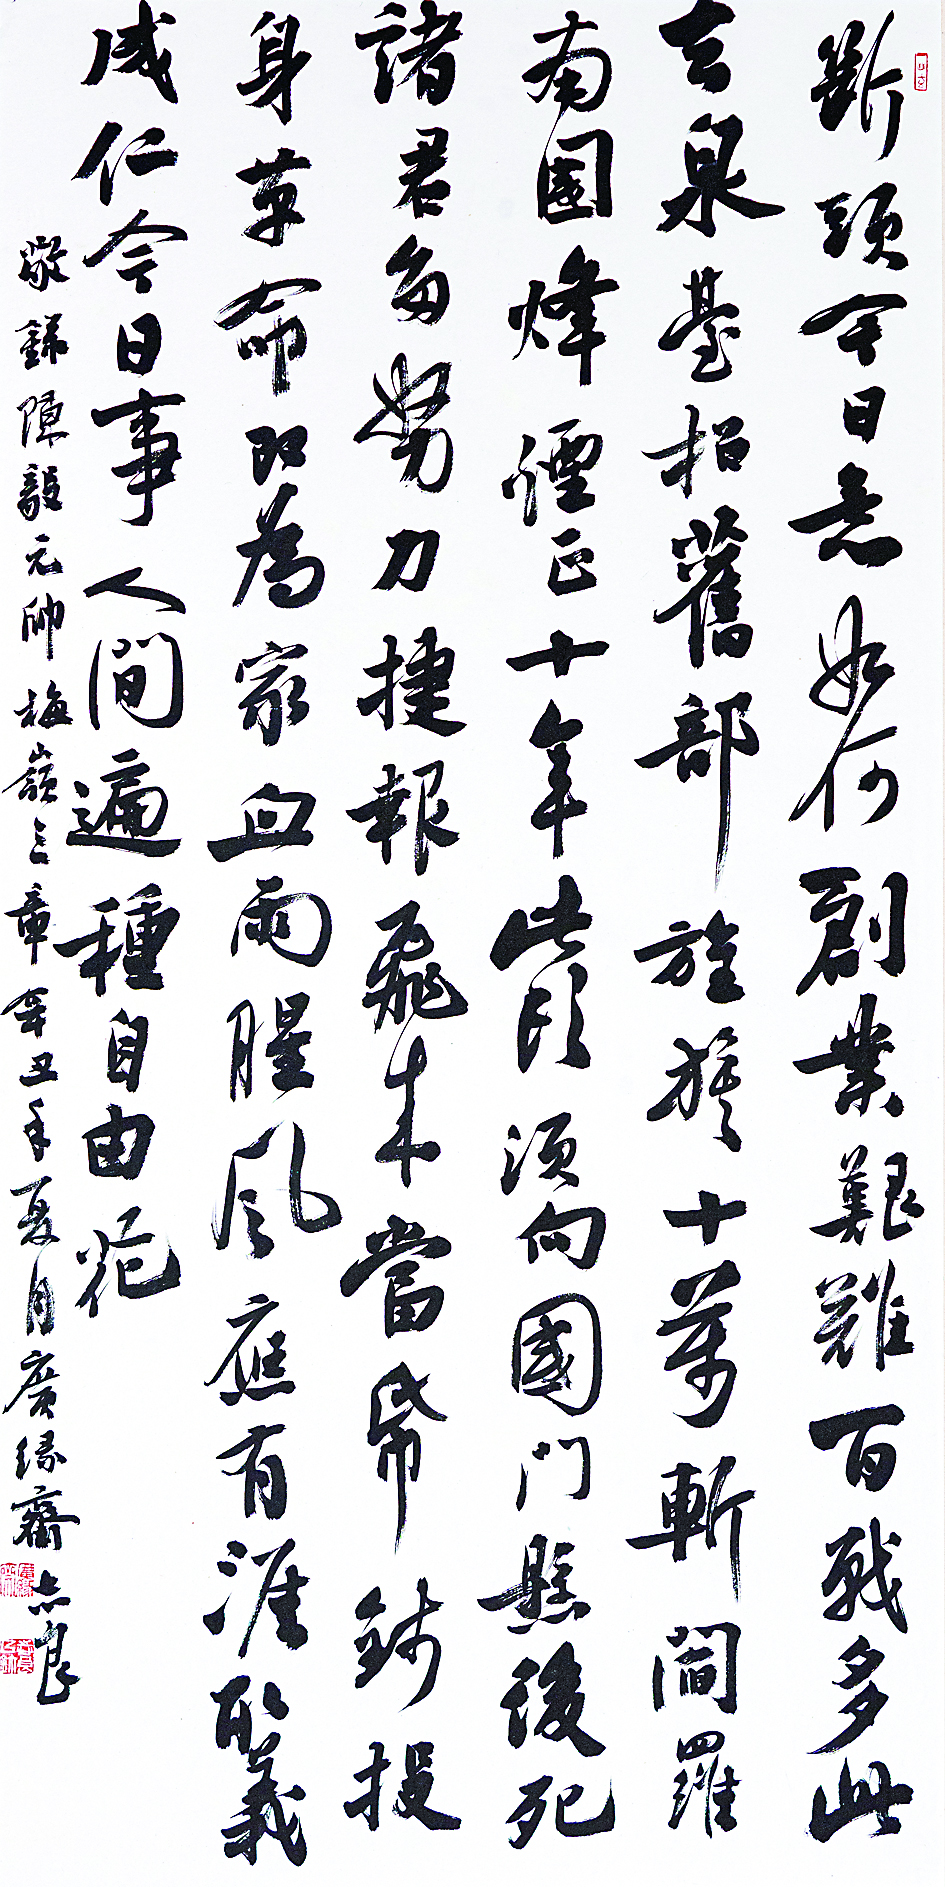 斷頭今日意如何創業艱難百戰多此
去泉臺招舊部旌旗十萬斬閻羅
南國烽煙正十年此頭須向國門懸後死
諸君多努力捷報飛来當紙錢投
身革命即為家血雨腥風應有涯取義
成仁今日事人間遍種自由花
敬錄陳毅元帥梅嶺三章辛丑年夏月廣緣齋志良